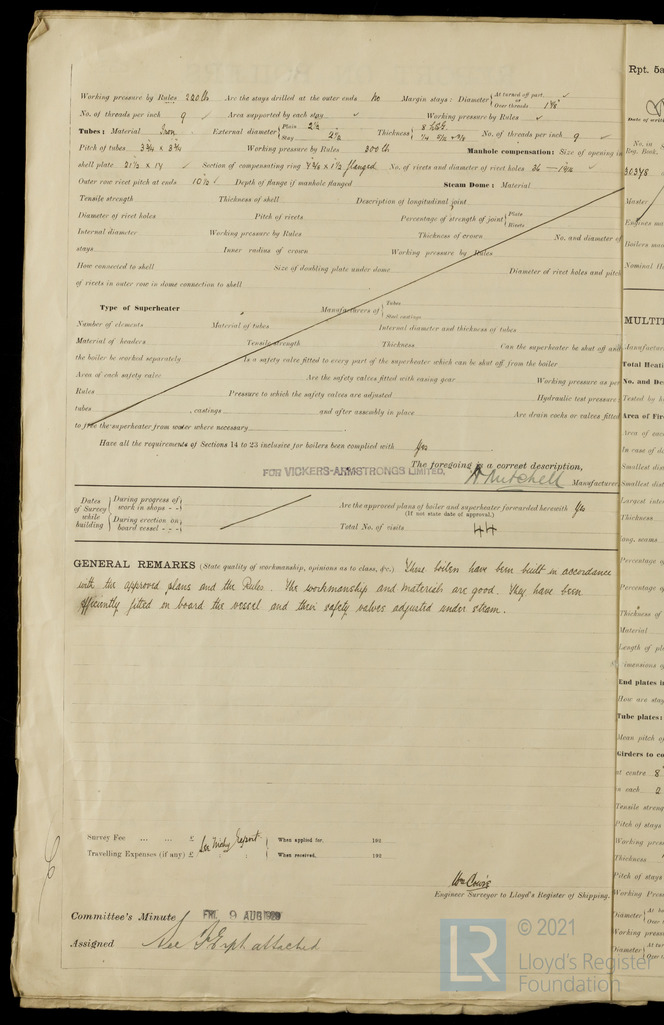 Working pressure by Rules 220 lb Are the stays drilled at the outer ends No Margin stays: Diameter { At turned off part, or Over threads 1⅞"
No. of threads per inch 9 Area supported by each stay Working pressure by Rules
Tubes: Material Iron External diameter { Plain 2½ Stay 2½ Thickness { 8 LSG No. of threads per inch 9
Pitch of tubes 3¾ x 3¾ Working pressure by Rules 300 lb Manhole compensation: Size of opening in
shell plate 21½ x 17 Section of compensating ring flanged No. of rivets and diameter of rivet holes 36
Outer row rivet pitch at ends 10½ Depth of flange if manhole flanged Steam Dome: Material
Tensile strength Thickness of shell Description of longitudinal joint
Diameter of rivet holes Pitch of rivets Percentage of strength of joint { Plate Rivets
Internal diameter Working pressure by Rules Thickness of crown No. and diameter of
stays Inner radius of crown Working pressure by Rules
How connected to shell Size of doubling plate under dome Diameter of rivet holes and pitch
of rivets in outer row in dome connection to shell
Type of Superheater Manufacturers of { Tubes Steel castings
Number of elements Material of tubes Internal diameter and thickness of tubes
Material of headers Tensile strength Thickness Can the superheater be shut off and
the boiler be worked separately Is a safety valve fitted to every part of the superheater which can be shut off from the boiler
Area of each safety valve Are the safety valves fitted with easing gear Working pressure as per
Rules Pressure to which the safety valves are adjusted Hydraulic test pressure:
tubes , castings and after assembly in place Are drain cocks or valves fitted
to free the superheater from water where necessary
Have all the requirements of Sections 14 to 23 inclusive for boilers been complied with Yes
The foregoing is a correct description,
FOR VICKERS-ARMSTRONGS LIMITED, A Mitchell Manufacturer
Dates of Survey while building { During progress of work in shops - - During erection on board vessel - - -
Are the approved plans of boiler and superheater forwarded herewith Yes
(If not state date of approval.)
Total No. of visits 44
GENERAL REMARKS (State quality of workmanship, opinions as to class, &c.) These boilers have been built in accordance
with the approved plans and the Rules. The workmanship and materials are good. They have been
efficiently fitted on board the vessel and their safety valves adjusted under steam.
Survey Fee ... ... £ See Mchy Report When applied for, 192
Travelling Expenses (if any) £ When received, 192
Engineer Surveyor to Lloyd's Register of Shipping.
Committee's Minute FRI. 9 AUG 1929
Assigned See attached
LR © 2021
Lloyd's Register
Foundation
Rpt. 5a
Date of writing
No. in
Reg. Book.
30378
Master
Engines ma
Boilers mad
Nominal Ho
MULTIT
Manufacturer
Total Heati
No. and De
Tested by h
Area of Fir
Area of eac
In case of d
Smallest dist
Smallest dist
Largest inter
Thickness
long. seams
Percentage of
Percentage of
Thickness of
Material
Length of pl
Dimensions of
End plates in
How are stay
Tube plates:
Mean pitch of
Girders to co
at centre 8
in each 2
Tensile streng
Pitch of stays
Working press
Thickness
Pitch of stays
Working Press
Diameter { At tu Over
Working press
Diameter { At tur Over t